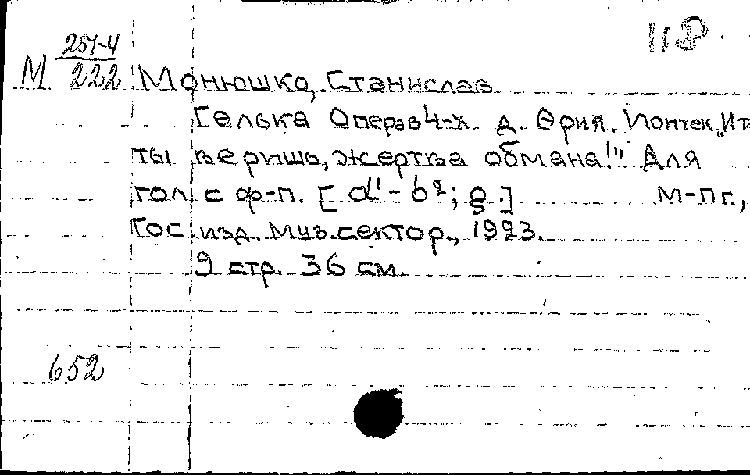 118
М 251-4
222 Монюшко, Станислав
Галька Опера в 4-х д. Ария. Йонтек „И
ты веришь, жертва обмана!" Для
гол. с ф-п. [d¹ - b²; g.] М-пг.,
Гос. изд. муз. сектор., 1923.
9 стр. 36 см.
652